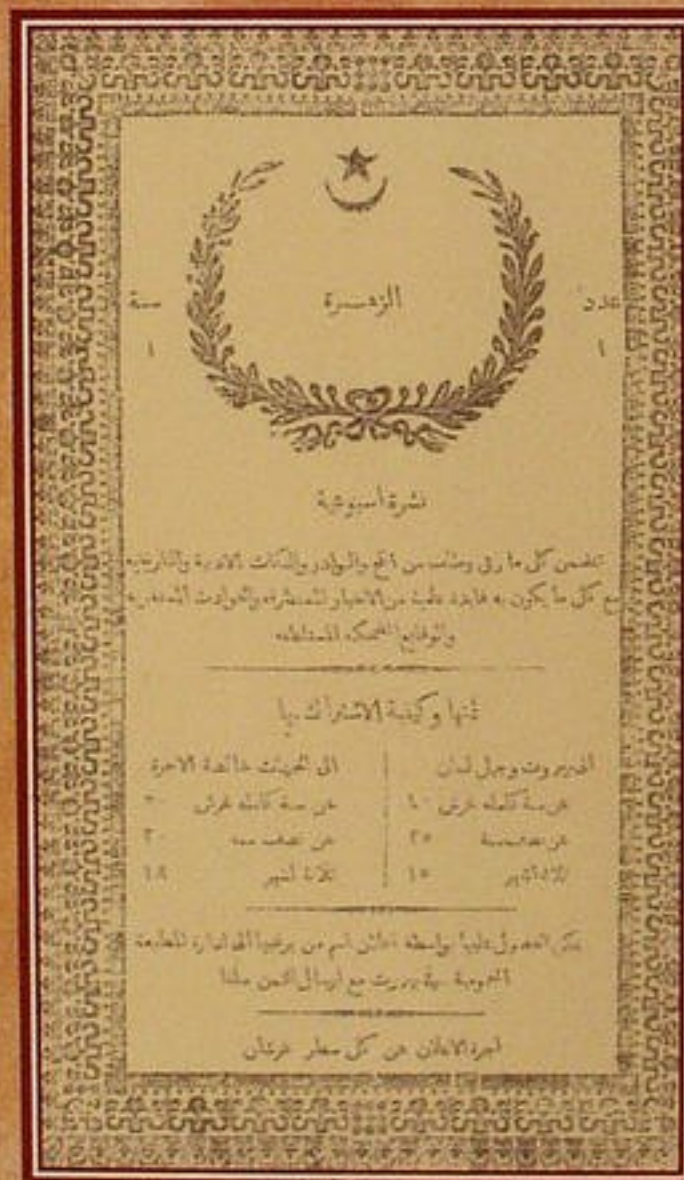 عدد
١
الزهرة
سنة
١
نشرة أسبوعية
تتضمن كل ما رق من الملح والنوادر والنكات الادبية والتاريخيه
مع كل ما يكون به فايدة من الاخبار والحوادث
والوقايع
ثمنها وكيفية الاشتراك بها
بيروت وجبل لبنان
عن سنة كامله غرش
عن نصف سنة ٢٥
ثلاثة أشهر ١٥
الى الجهات خالصة الاجرة
عن سنة كامله غرش
عن نصف سنه ٣٠
ثلاثة أشهر ١٨
يمكن الحصول عليها بواسطة اسم من يرغبها الى ادارة المطبعة
العمومية في بيروت مع ارسال الثمن سلفا
اجرة الاعلان عن كل سطر غرشان